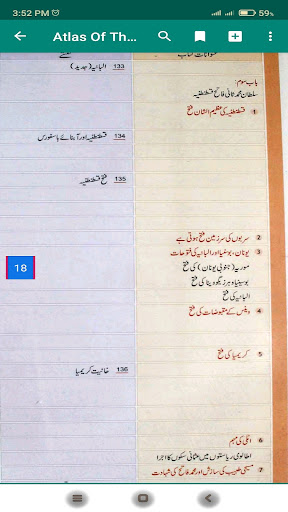 3:52 PM
59%
Atlas Of Th...
عنوانات کتاب
نقشے
133 البانیہ (جدید)
باب سوم:
سلطان محمد ثانی فاتح قسطنطنیہ
1 قسطنطنیہ کی عظیم الشان فتح
134 قسطنطنیہ اور آبنائے باسفورس
135 فتح قسطنطنیہ
2 سربوں کی سرزمین فتح ہوتی ہے
3 یونان، بوسنیا اور البانیہ کی فتوحات
موریہ (جنوبی یونان) کی فتح
18
بوسنیا و ہرزیگووینا کی فتح
البانیہ کی فتح
4 وینس کے مقبوضات کی فتح
5 کریمیا کی فتح
136 خانیت کریمیا
6 اٹلی کی مہم
اطالوی ریاستوں میں عثمانی سکوں کا اجرا
7 مسیحی طبیب کی سازش اور محمد فاتح کی شہادت